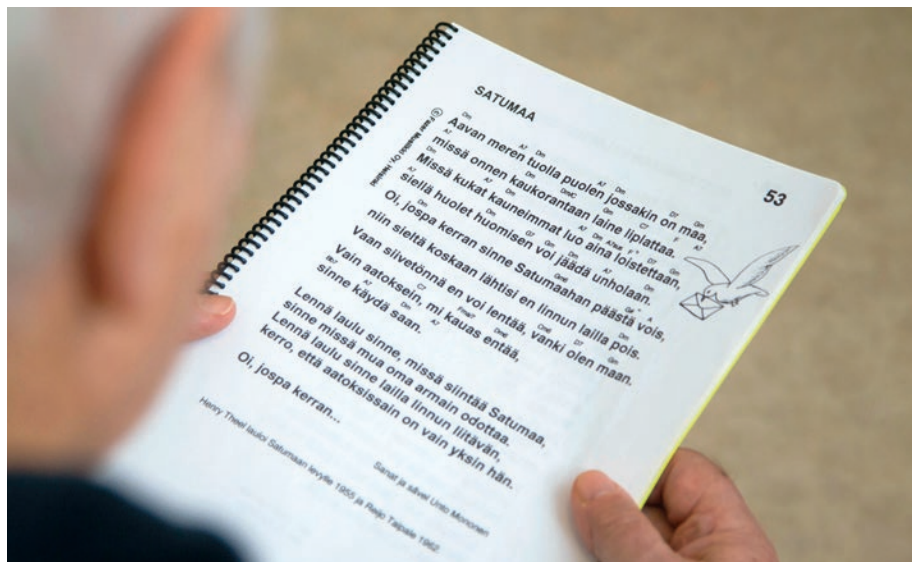 SATUMAA
53
Aavan meren tuolla puolen jossakin on maa,
missä onnen kaukorantaan laine lipiattaa.
Missä kukat kauneimmat luo aina loistettaan,
siellä huolet huomisen voi jäädä unholaan.
Oi, jospa kerran sinne Satumaahan päästä vois,
niin sieltä koskaan lähtisi en linnun lailla pois.
Vaan siivetönnä en voi lentää, vanki olen maan.
Vain aatoksein, mi kauas entää,
sinne käydä saan.
Lennä laulu sinne, missä siintää Satumaa,
sinne missä mua oma armain odottaa.
Lennä laulu sinne lailla linnun liitävän,
kerro, että aatoksissain on vain yksin hän.
Oi, jospa kerran...
Sanat ja sävel Unto Mononen
Henry Theel lauloi Satumaan levylle 1955 ja Reijo Taipale 1962.